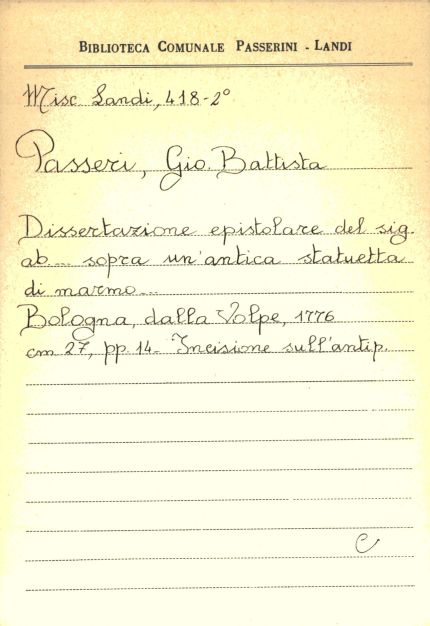 BIBLIOTECA COMUNALE PASSERINI - LANDI
Misc Landi, 418-2°
Passeri, Gio. Battista
Dissertazione epistolare del sig.
ab... sopra un'antica statuetta
di marmo...
Bologna, dalla Volpe, 1776
cm 27, pp. 14. Incisione sull'antip.
C